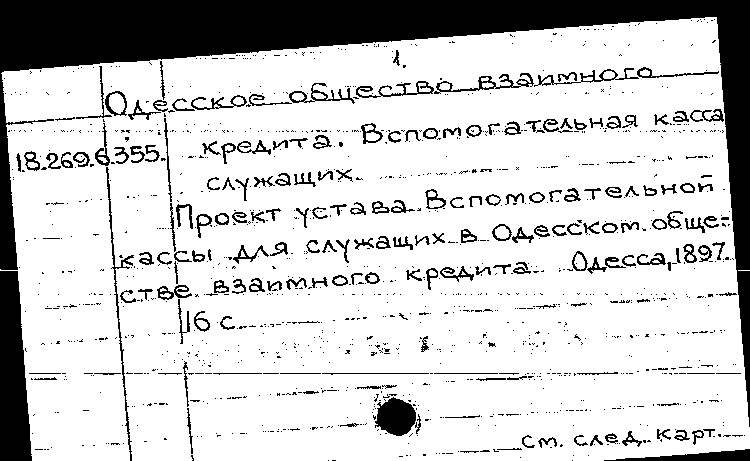 1.
Одесское общество взаимного
18.269.6.355. кредита. Вспомогательная касса
служащих.
Проект устава Вспомогательной
кассы для служащих в Одесском обще-
стве взаимного кредита. Одесса, 1897.
16 с.
См. след. карт.